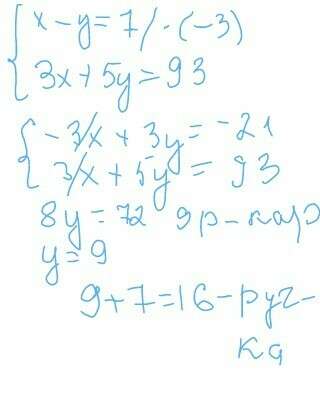 x - y = 7 / · (-3)
3x + 5y = 93
-3x + 3y = -21
3x + 5y = 93
8y = 72 9р - кар
y = 9
9 + 7 = 16 - руч-
ка